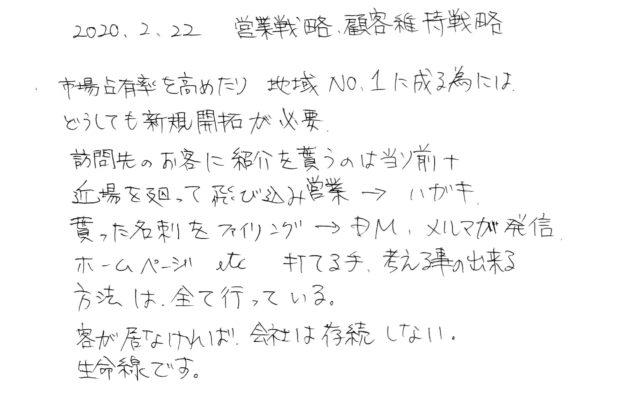 2020.2.22 営業戦略、顧客維持戦略
市場占有率を高めたり 地域NO.1に成る為には
どうしても新規開拓が必要
訪問先のお客に紹介を貰うのは当り前+
近場を廻って飛び込み営業→ハガキ
貰った名刺をファイリング→DM、メルマガ発信
ホームページ etc 打てる手、考える事の出来る
方法は、全て行っている。
客が居なければ、会社は存続しない。
生命線です。